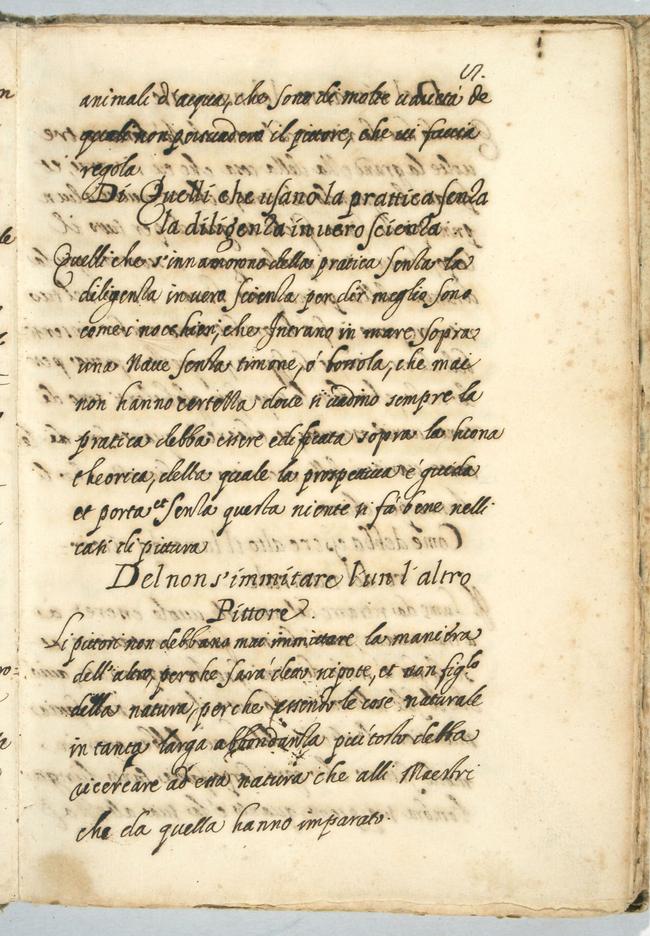 5.
animali d'acqua, che sono di molte uarietá de
quali non persuaderó il pittore, che ui faccia
regola
Di Quelli che usano la prattica senza
la diligenza in uero scienza
Quelli che s'innamorono della pratica senza la
diligenza in uero scienza per dir meglio sono
come i nocchieri, che Intrano in mare sopra
una Naue senza timone, ó bossola, che mai
non hanno certezza doue si uadino sempre la
pratica debba essere edificata sopra la buona
theorica, della quale la prospetiua é guida
et porta et senza questa niente si fá bene nelli
casi di pittura
Del non s'immitare l'un l'altro
Pittore
Li pittori non debbano mai immitare la maniera
dell'altro, perche sará detto nipote, et non figlo
della natura, perche essendo le cose naturale
in tanta larga abbondanza piú tosto debba
ricercare ad essa natura che alli Maestri
che da quella hanno imparato.